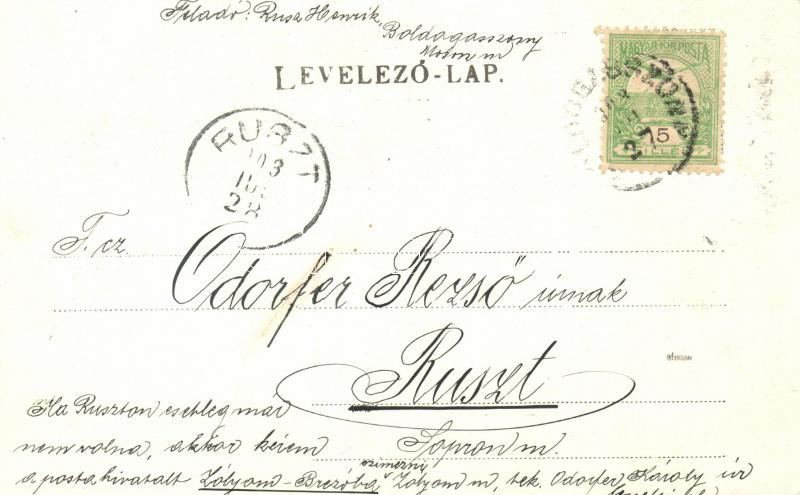 Feladó: Rusz Henrik,
Boldogasszony
Moson m
LEVELEZŐ-LAP.
MAGYAR KIR. POSTA
5
FILLÉR
RUSZT
903
28
T. cz.
Odorfer Rezső úrnak
Ruszt
Sopron m.
Ha Ruszton esetleg már
nem volna, akkor kérem
a postahivatalt Zólyom-Brezóba czimezni, Zólyom m, tek. Odorfer Károly úr